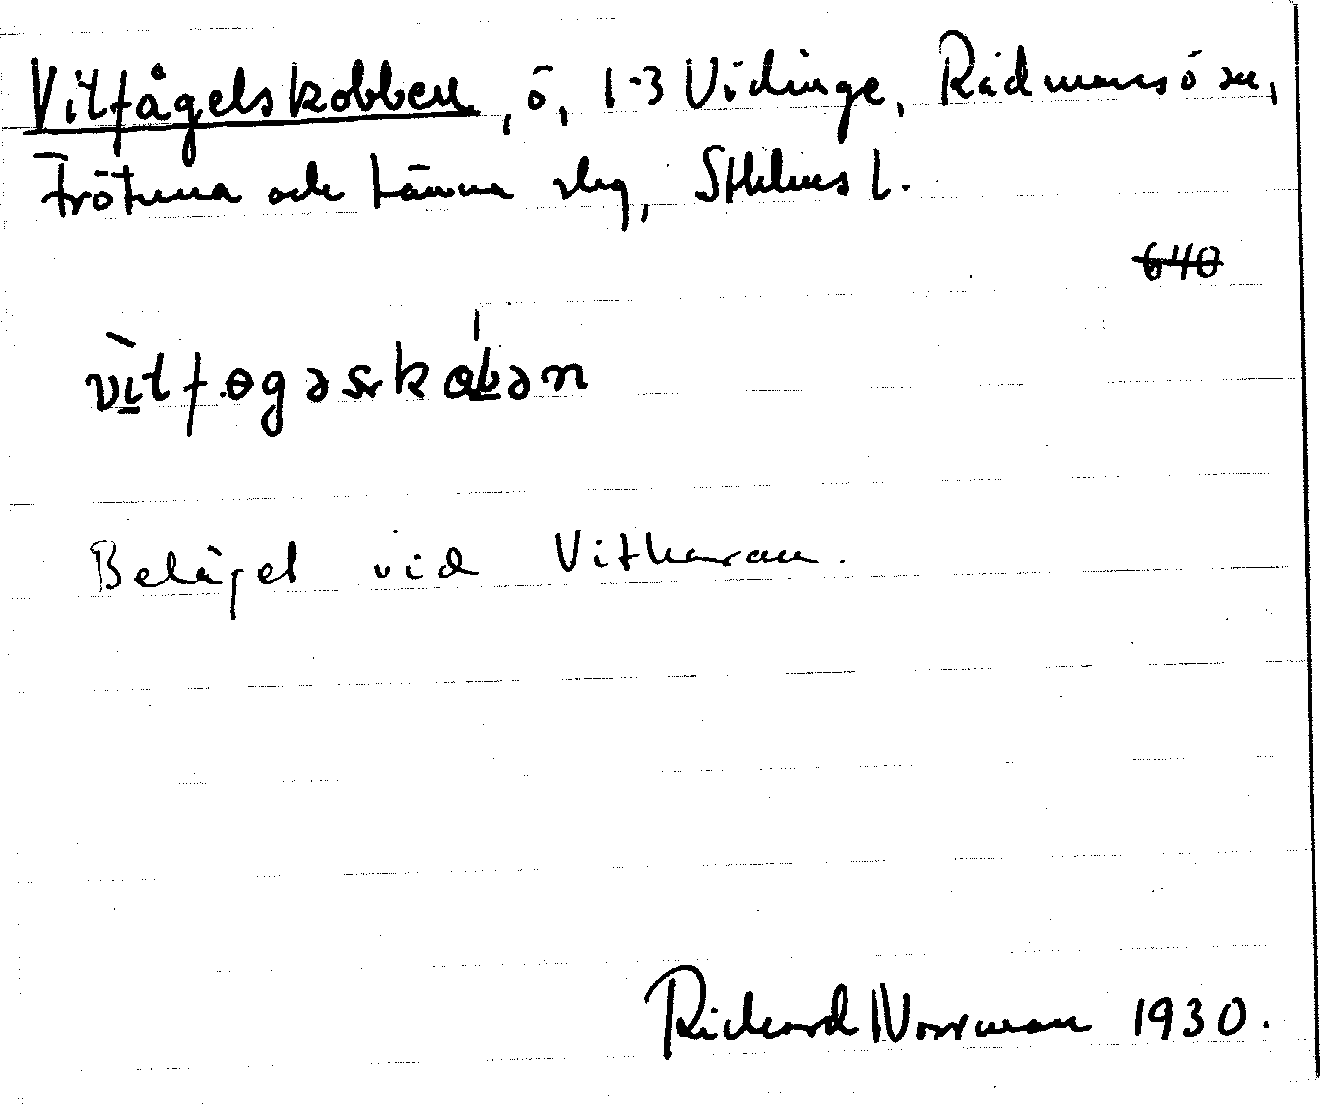 Vitfågelskobben, ö, 1-3 Vidinge, Rådmansö sn,
Frötuna och Länna slg, Sthlms l.
640
vìtfɵgəskåbən
Beläget vid Vitharan.
Richard Norrman 1930.